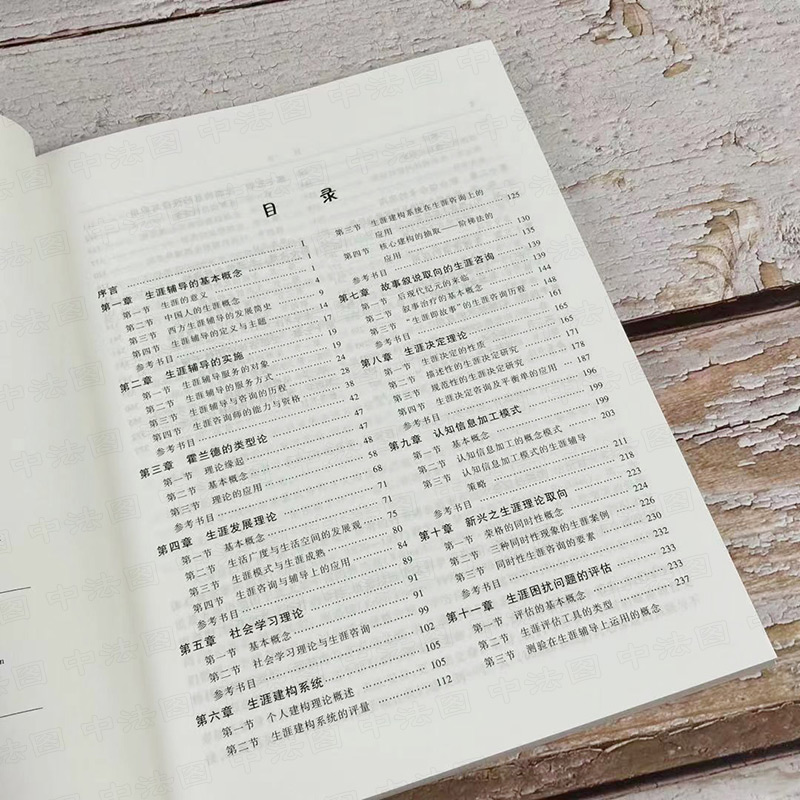 目 录
序言 1
第一章 生涯辅导的基本概念 1
第一节 生涯的意义 1
第二节 中国人的生涯概念 4
第三节 西方生涯辅导的发展简史 9
第四节 生涯辅导的定义与主题 14
参考书目 17
第二章 生涯辅导的实施 19
第一节 生涯辅导服务的对象 19
第二节 生涯辅导的服务方式 24
第三节 生涯辅导与咨询的历程 28
第四节 生涯咨询师的能力与资格 38
参考书目 42
第三章 霍兰德的类型论 47
第一节 理论缘起 47
第二节 基本概念 48
第三节 理论的应用 58
参考书目 68
第四章 生涯发展理论 71
第一节 基本概念 71
第二节 生活广度与生活空间的发展观 75
第三节 生涯模式与生涯成熟 80
第四节 生涯咨询与辅导上的应用 84
参考书目 89
第五章 社会学习理论 91
第一节 基本概念 91
第二节 社会学习理论与生涯咨询 99
参考书目 102
第六章 生涯建构系统 105
第一节 个人建构理论概述 105
第二节 生涯建构系统的评量 112
第三节 生涯建构系统在生涯咨询上的
应用 125
第四节 核心建构的抽取——阶梯法的
应用 130
参考书目 135
第七章 故事叙说取向的生涯咨询 139
第一节 后现代纪元的来临 139
第二节 叙事治疗的基本概念 144
第三节 “生涯即故事”的生涯咨询历程 148
参考书目 161
第八章 生涯决定理论 165
第一节 生涯决定的性质 165
第二节 描述性的生涯决定研究 171
第三节 规范性的生涯决定研究 178
第四节 生涯决定咨询及平衡单的应用 187
参考书目 196
第九章 认知信息加工模式 199
第一节 基本概念 199
第二节 认知信息加工的概念模式 203
第三节 认知信息加工模式的生涯辅导
策略 211
参考书目 218
第十章 新兴之生涯理论取向 223
第一节 荣格的同时性概念 224
第二节 三种同时性现象的生涯案例 226
第三节 同时性生涯咨询的要素 230
参考书目 232
第十一章 生涯困扰问题的评估 233
第一节 评估的基本概念 233
第二节 生涯评估工具的类型 237
第三节 测验在生涯辅导上运用的概念